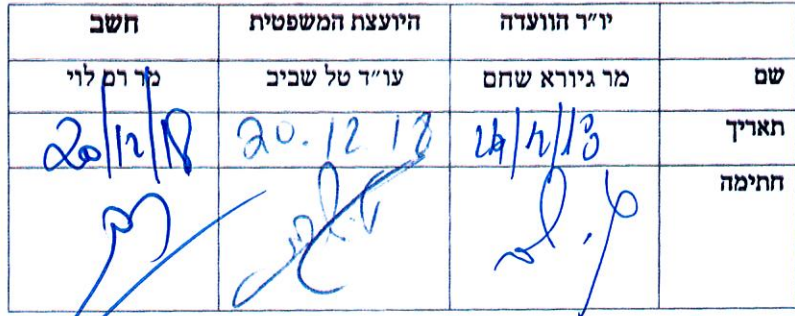 יו״ר הוועדה היועצת המשפטית חשב
שם מר גיורא שחם עו״ד טל שביב מר רם לוי
תאריך 20.12.18 20/12/18
חתימה